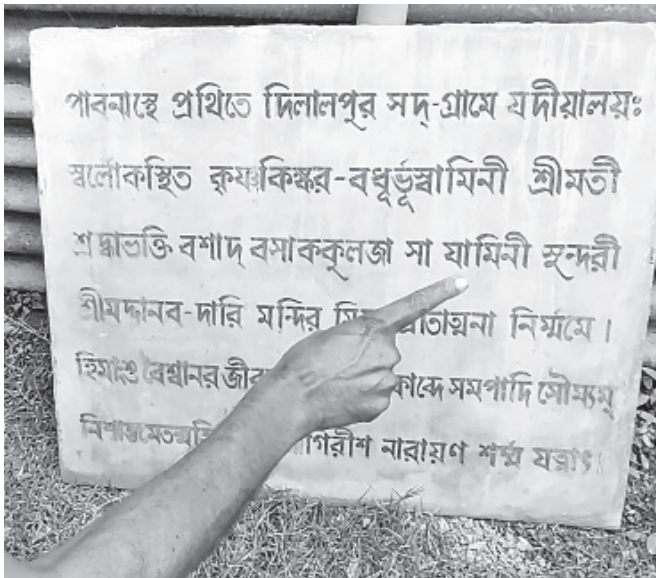 পাবনাস্থে প্রথিতে দিলালপুর সদ্-গ্রামে যদীয়ালয়ঃ
স্বর্লোকস্থিত কৃষ্ণকিঙ্কর-বধূর্ভূস্বামিনী শ্রীমতী
শ্রদ্ধাভক্তি বশাদ্ বসাককুলজা সা যামিনী সুন্দরী
শ্রীমদ্দানব-দারি মন্দির নির্ম্মমে।
হিমাংশু বৈশ্বানর সমপাদি সৌম্যম্
নারায়ণ শর্ম্ম যত্নাৎ।